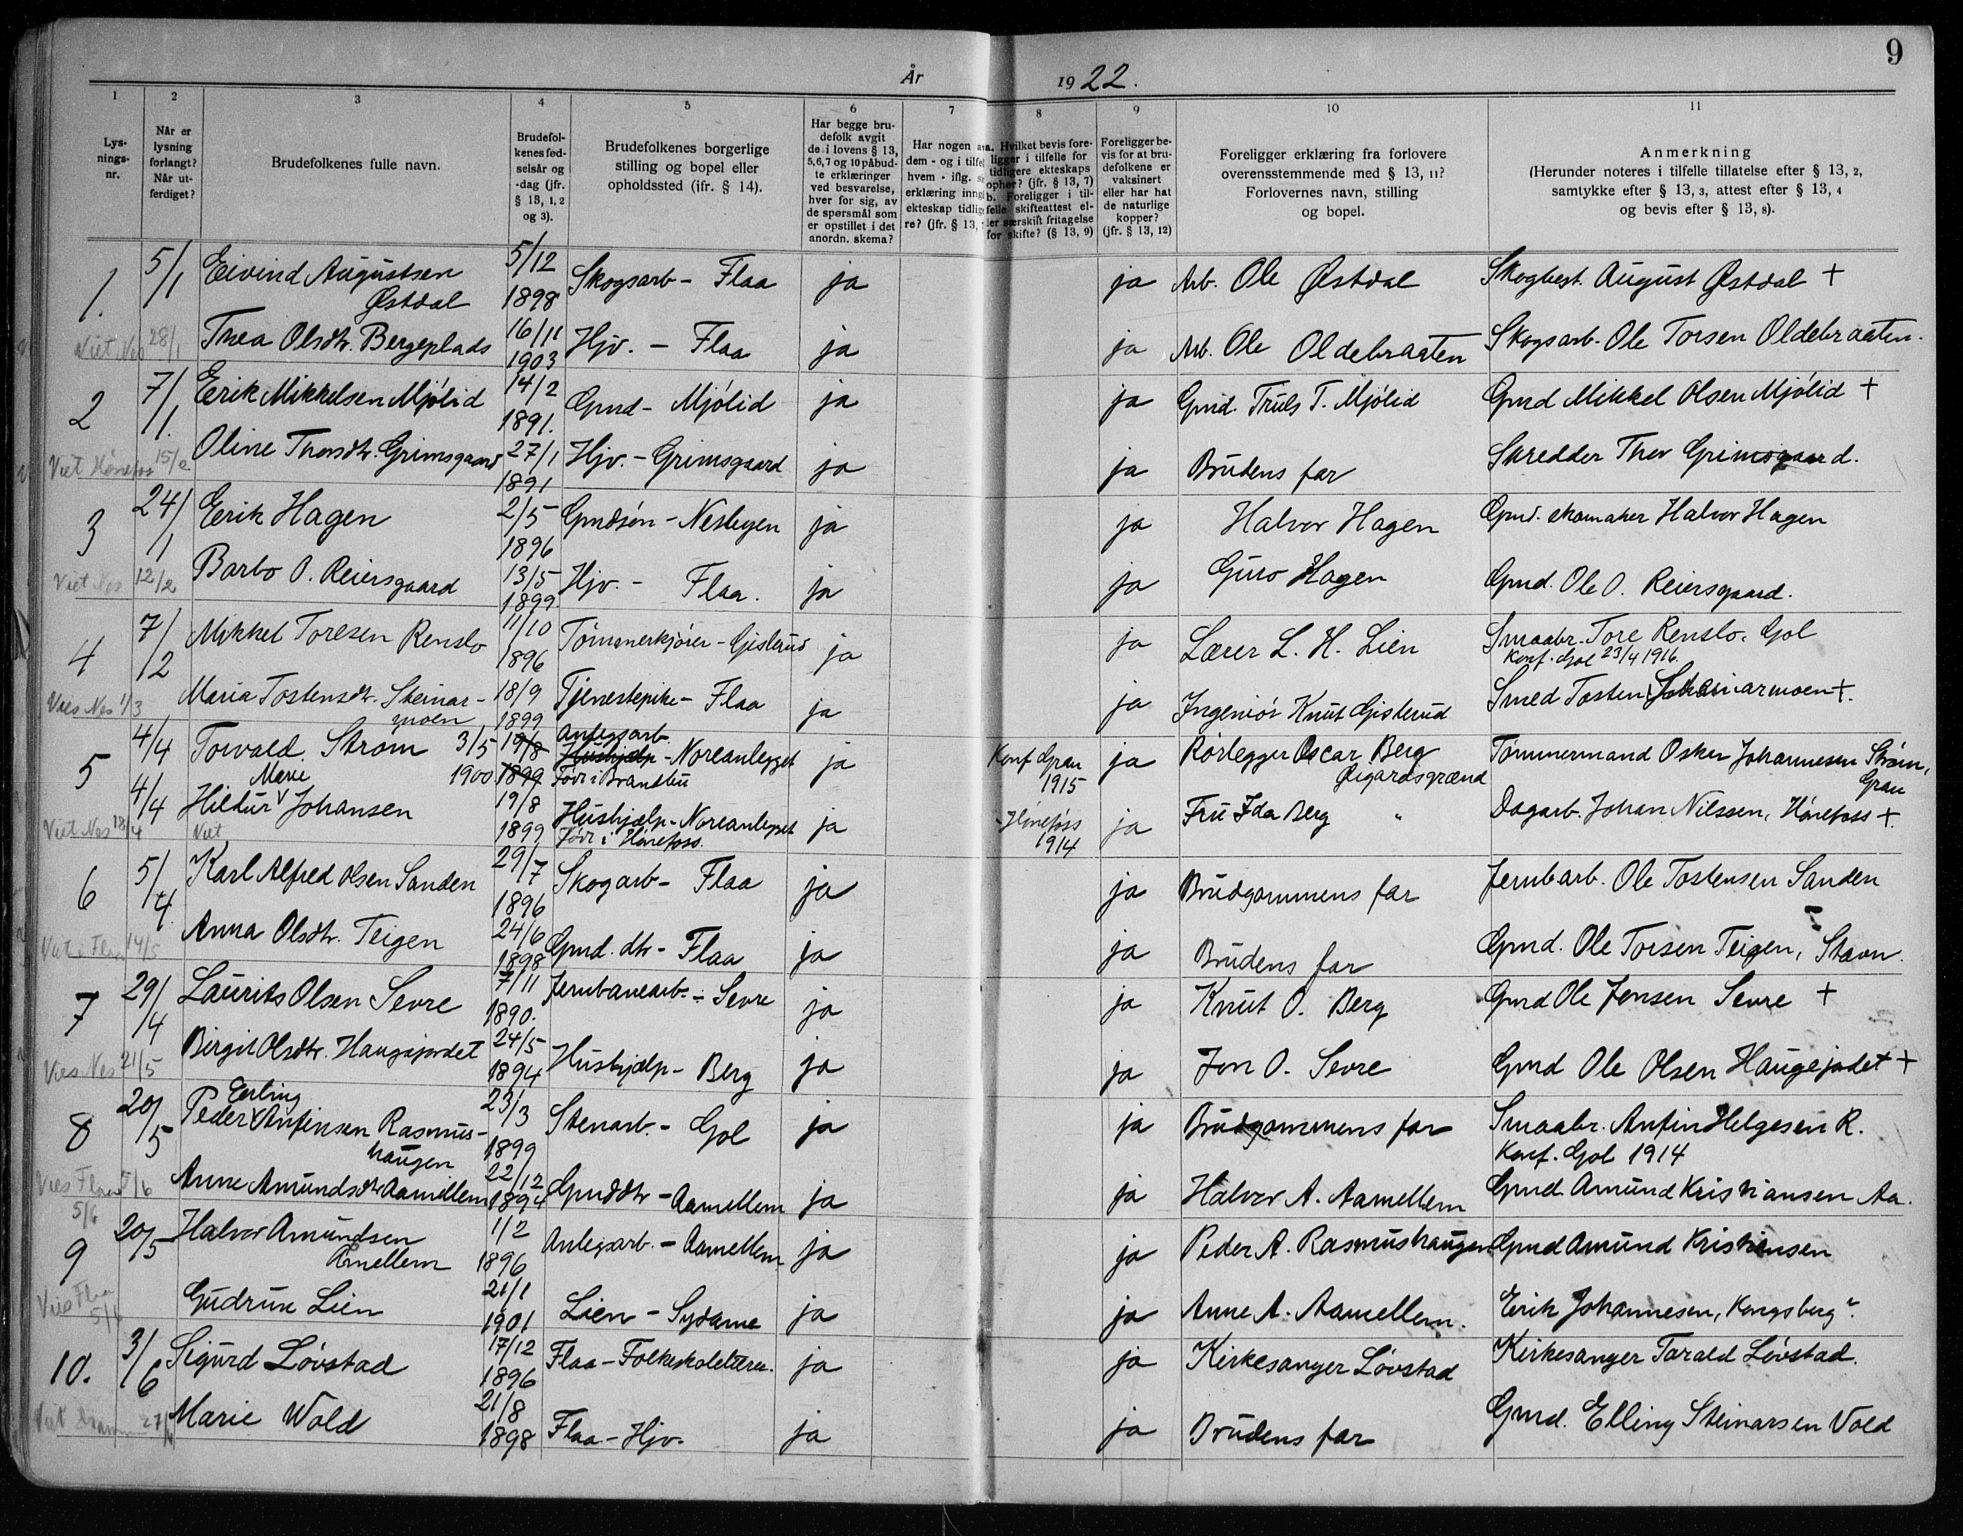 9
År 1922.
1 2 3 4 5 6 7 8 9 10 11
Lys-
nings-
nr.
Når er
lysning
forlangt?
Når ut-
ferdiget?
Brudefolkenes fulle navn.
Brudefol-
kenes fød-
selsår og
-dag (jfr.
§ 13, 1, 2
og 3).
Brudefolkenes borgerlige
stilling og bopel eller
opholdssted (ifr. § 14).
Har begge bru-
defolk avgit
de i lovens § 13,
5,6,7 og 10 påbud-
te erklæringer
ved besvarelse,
hver for sig, av
de spørsmål som
er opstillet i det
anordn. skema?
Har nogen a
dem - og i tilfel
hvem - iflg.
erklæring inng
ekteskap tidlig
re? (jfr. § 13,
a. Hvilket bevis fore-
ligger i tilfelle for
tidligere ekteskaps
ophør? (jfr. § 13, 7)
b. Foreligger i til-
felle skifteattest el-
ler særskilt fritagelse
for skifte? (§ 13, 9)
Foreligger be-
vis for at bru-
defolkene er
vaksinert
eller har hat
de naturlige
kopper?
(jfr. § 13, 12)
Foreligger erklæring fra forlovere
overensstemmende med § 13, 11?
Forlovernes navn, stilling
og bopel.
Anmerkning
(Herunder noteres i tilfelle tillatelse efter § 13, 2,
samtykke efter § 13, 3, attest efter § 13, 4
og bevis efter § 13, 8).
1. 5/1 Eivind Augustsen Østdal 5/12 1898 Skogsarb - Flaa ja ja Arb. Ole Østdal Skogbest. August Østdal +
Viet Nes 28/1 Thea Olsdtr. Bergeplads 16/11 1903 Hjv. - Flaa ja ja Arb. Ole Oldebraaten Skogsarb. Ole Torsen Oldebraaten.
2 7/1. Erik Mikkelsen Mjölid 14/2 1891. Gmd - Mjölid ja ja Gmd. Truls T. Mjölid Gmd Mikkel Olsen Mjölid +
Viet Hönefos 15/2 Oline Thorsdtr. Grimsgaard 27/1 1891 Hjv. - Grimsgaard ja ja Brudens far Skredder Thor Grimsgaard.
3 24/1 Erik Hagen 2/5 1896 Gmdsön - Nesbyen ja ja Halvor Hagen Gmd. skomaker Halvor Hagen
Viet Nes 12/2 Barbo O. Reiersgaard 13/5 1899 Hjv. - Flaa. ja ja Guro Hagen Gmd. Ole O. Reiersgaard.
4 7/2 Mikkel Toresen Renslo 11/10 1896 Tømmerkjører - Gislerud ja ja Lærer L. H. Lien Smaabr. Tore Renslo. Gol
Konf. Gol 23/4 1916.
Vies Nes 1/3 Maria Tostensdtr. Steinarmoen 18/9 1899 Tjenestepike - Flaa ja ja Ingeniör Knut Gislerud Smed Tosten Steinarmoen +.
5 4/4 Torvald Strøm 3/5 1900 19/8 1899 Anlegsarb. Hushjælp - Noreanlegget Född i Brandbu ja Konf Gran 1915 ja Rörlegger Oscar Berg Øigardsgrænd Tømmermand Oskar Johannesen Ström, Gran
Viet Nes 18/4 4/4 Hildur Marie Johansen 19/8 1899 Hushjælp - Noreanlegget Född i Hönefoss. ja - Hönefoss 1914 ja Fru Ida Berg " Dagarb. Johan Nilssen, Hönefoss +.
Viet
6 5/4 Karl Alfred Olsen Sanden 29/7 1896 Skogarb - Flaa ja ja Brudgommens far Jernbarb. Ole Tostensen Sanden
Viet i Flaa 14/5 Anna Olsdtr. Teigen 24/6 1898 Gmd. dtr - Flaa ja ja Brudens far Gmd. Ole Torsen Teigen, Stavn.
7 29/4 Laurits Olsen Sevre 7/11 1890. Jernbanearb. - Sevre ja ja Knut O. Berg Gmd Ole Jensen Sevre +
Vies Nes 21/5 Birgit Olsdtr. Haugejordet 24/5 1894 Hushjælp - Berg ja ja Jon O. Sevre Gmd Ole Olsen Haugejodet +
8 20/5 Peder Erling Anfinsen Rasmushaugen 23/3 1899 Stenarb. - Gol ja ja Brudgommens far Smaabr. Anfin Helgesen R.
Konf. Gol 1914
Vies Flaa 5/6 Anne Amundsdtr Aamellem 22/12 1894 Gmddtr - Aamellem ja ja Halvor A. Aamellem Gmd. Amund Kristiansen Aa.
5/6
9 20/5 Halvor Amundsen Amellem 1/2 1896 Anlegsarb. - Aamellem ja ja Peder A. Rasmushaugen Gmd Amund Kristiansen
Vies Flaa 5/6 Gudrun Lien 21/1 1901 Lien - Sydame ja ja Anne A. Aamellem. Erik Johannesen, Kongsberg.
10. 3/6 Sigurd Lövstad 17/12 1896 Flaa - Folkeskolelærer. ja ja Kirkesanger Lövstad Kirkesanger Tarald Lövstad.
Viet Dram Marie Wold 21/8 1898 Flaa - Hjv. ja ja Brudens far Gmd. Elling Steinarsen Vold